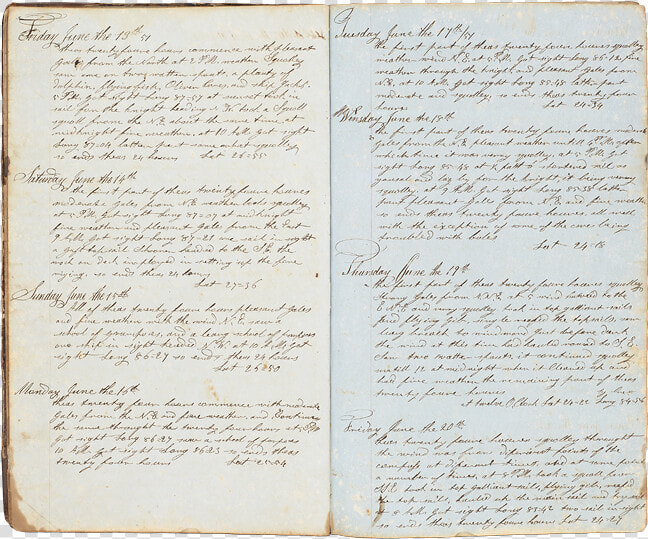 Friday June the 13th /51
theas twenty foure hours commence with pleasant
gales from the North at 2 P.M. weather Squaley
saw one on two watter spouts, a plenty of
dolphin, flyingfish, and ship Jacks.
5 P.M. Got sight Long 87-57 at sunset took in
sail for the knight heading N.W. took a Squall
squall from the N.E. about the same time at
midknight fine weather, at 10 A.M. Got sight
Long 87.04 latter part some what squally
so ends theas 24 hours Lat 28=55
Saturday June the 14th
the first part of theas twenty foure houres
moderate gales from N.E. weather looks squaley
at 5 P.M. Got sight Long 87=07 at midknight
fine weather and pleasant gales from the East
9 A.M. Got sight Long 87-21 one sail in sight
a top sail Schooner headed to the S.E. the
wach on deck employed in setting up the fine
riging. so ends theas 24 hours
Lat 27=36
Sunday June the 15th
All of theas twenty foure hours pleasant gales
and fine weather with the wind N.E. saw a
school of grampuses, and a large school of porposes
one ship in sight headed N.W. at 10 A.M. Got
sight Long 86-27 so ends theas 24 houres
Lat 26=50
Munday June the 16th
theas twenty foure hours commence with moderate
gales from the N.E and fine weather and Continues
the same throught the twenty four hours at 5 P.M
Got sight Long 86 27 saw a school of porposes
10 A.M. Got sight Long 86 23 so ends theas
twenty foure hours Lat 25=04
Tuesday June the 17th /51
the first part of theas twenty foure houres squalley
weather wind N.E. at 5 P.M. Got sight Long 86-12 fine
weather through the knight, and pleasant Gales from
N.E. at 10 A.M. Got sight Long 85.48 latter part
moderate and squaley, so ends theas twenty foure
houres Lat 24-34
Wensday June the 18th
the first part of theas twenty foure houres moderate
gales from the N.E. pleasant weather untill 4 P.M. after
which time it was very squaley, at 5 P.M. Got
sight Long 85-48 at
and lay by for the knight, it being verry
squaley. at 9 A.M. Got sight Long 85=38 latter
part pleasant Gales from N.E. and fine weather
so ends theas twenty foure houres all well
with the exception of some of the crew being
troubbled with boiles
Lat 24=18
Thursday June the 19th
the first part of theas twenty foure houres squaley
strong Gales from N.N.E. at 5 wind to the
E.N.E. and very squaley took in top gallant sails
flying gibs, and reafed the topsails, saw
rocks to windward Just before dark
the wind at this time had hauled round to S.E.
Saw two watter spouts, it continued squaley
untill 12 at midknight when it Cleared up and
had fine weather the remaining part of theas
twenty foure houres
at twelve O,Clock Lat 24-22 Long 84=56
Friday June the 20th
theas twenty foure houres squaley throught
the wind was from diferant points of the
compass at diferant times, and at nune
a number of times, at 5 P.M. took a squall from
S.E. took in top gallant sails, flying gib, reafed
the top sails, hauled up the main sail and
at 8 A.M. Got sight Long 83.42 two sail in sight
so ends theas twenty foure houres Lat 24=27